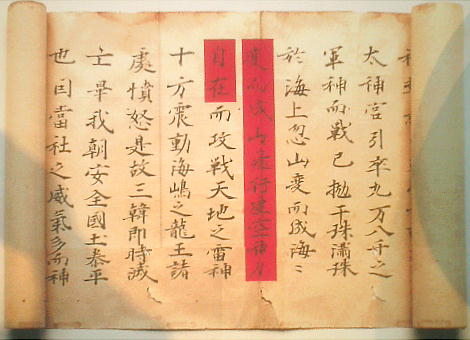 太神宮引率九万八千之
軍神而戦已拋干珠滿珠
於海上忽山變而成海〻
變而成山飛行虚空神力
自在而攻戰天地之雷神
十方震動海嶋之龍王諸
處憤怒是故三韓即時滅
亡畢我朝安全國土泰平
也因當社之威氣多而神